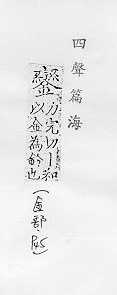 四聲篇海
力完切丨和
以金為鈴也
部